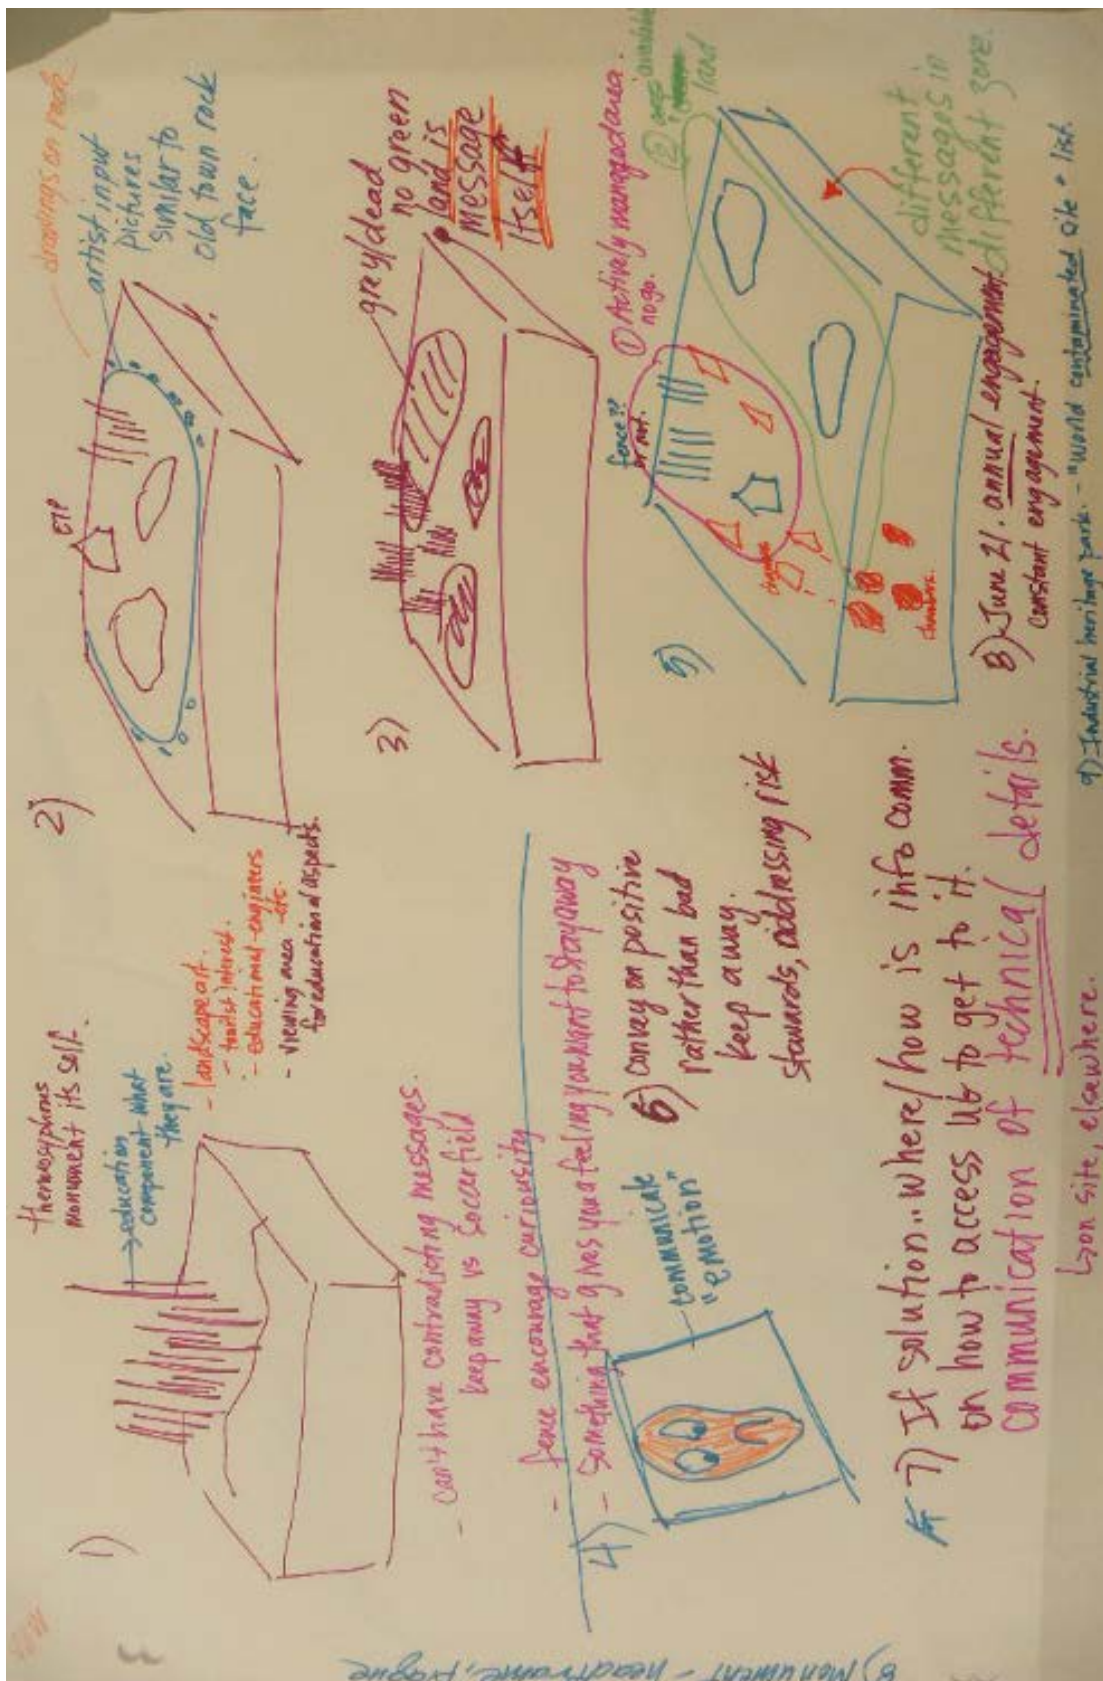 1)
thermosyphons
monument its self.
→ education
component what
they are.
- landscape art.
- tourist interest.
- educational - engineers
- viewing area etc.
for educational aspects.
- can't have contradicting messages.
keep away vs soccer field
- fence encourage curiousity
2)
ETP
drawings on rock
artist input
pictures
similar to
old town rock
face.
3)
grey/dead
no green
land is
message
itself
4) - something that gives you a feeling you want to stay away
communicate
"emotion"
5)
fence??
or not.
① Actively managed area.
no go.
②
available
land
chambers.
different
messages in
different zone.
6) convay on positive
rather than bad
keep away.
stewards, addressing risk
7) If solution.. where/how is info comm.
on how to access
to get to it.
communication of technical details.
↳ on site, elsewhere.
8) June 21. annual engagement
constant engagement.
9) Industrial heritage park. - "world contaminated site" list.
8) Monument - headframe, plaque